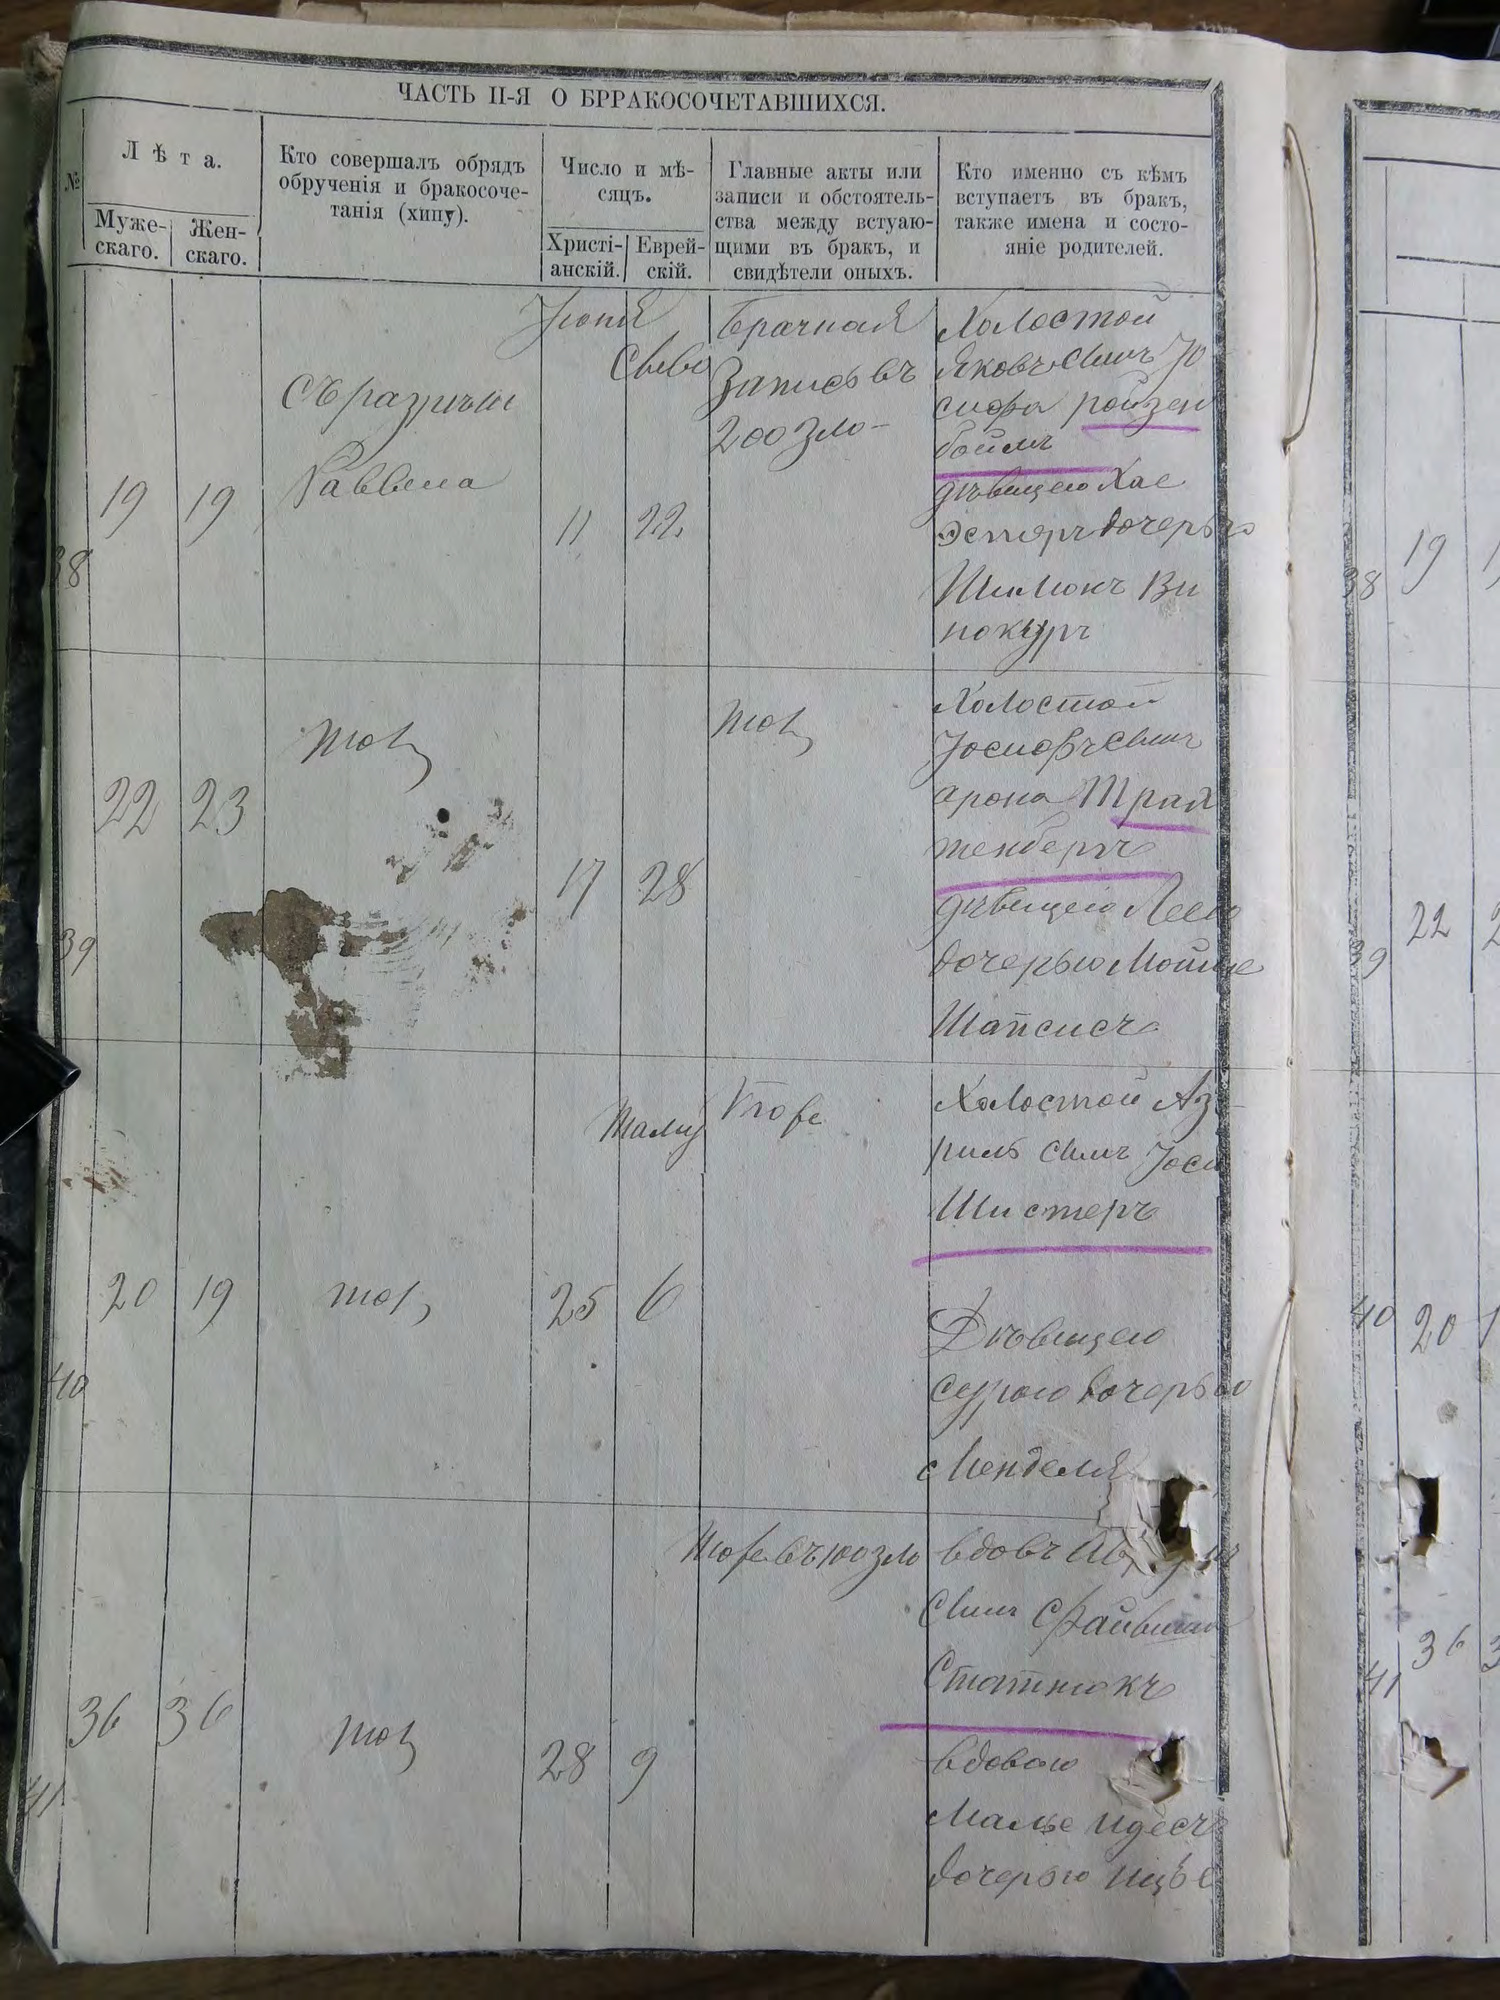 ЧАСТЬ II-Я О БРРАКОСОЧЕТАВШИХСЯ.
№
Лѣта.
Муже-
скаго.
Жен-
скаго.
Кто совершалъ обрядъ
обрученія и бракосоче-
танія (хипу).
Число и мѣ-
сяцъ.
Христі-
анскій.
Еврей-
скій.
Главные акты или
записи и обстоятель-
ства между встуаю-
щими въ бракъ, и
свидѣтели оныхъ.
Кто именно съ кѣмъ
вступаетъ въ бракъ,
также имена и состо-
яніе родителей.
38
19
19
Съ разрѣш
Раввина
Іюня
11
22
Брачная
Запись въ
200 зло-
Холостой
Яковъ сынъ Іо
сифа Ройзен
боймъ
дѣвицею Хае
Эстеръ дочерью
Шимонъ Ви
нокуръ
39
22
23
тотъ
17
28
тотъ
Холостой
Іосифъ сынъ
Арона Трах
тенберъ
дѣвицею Леею
дочерью Мойше
Шапсисъ
40
20
19
тотъ
25
Тамуз
6
тоже
Холостой Аз-
риль сынъ Іоси
Шистеръ
Дѣвицею
Сурою дочерью
Менделя
41
36
36
тотъ
28
9
тоже въ 100 зло
вдовъ
сынъ Файвиша
Статнюкъ
вдовою
Малье Идесъ
дочерью Ицье
38
19
39
22
40
20
41
36